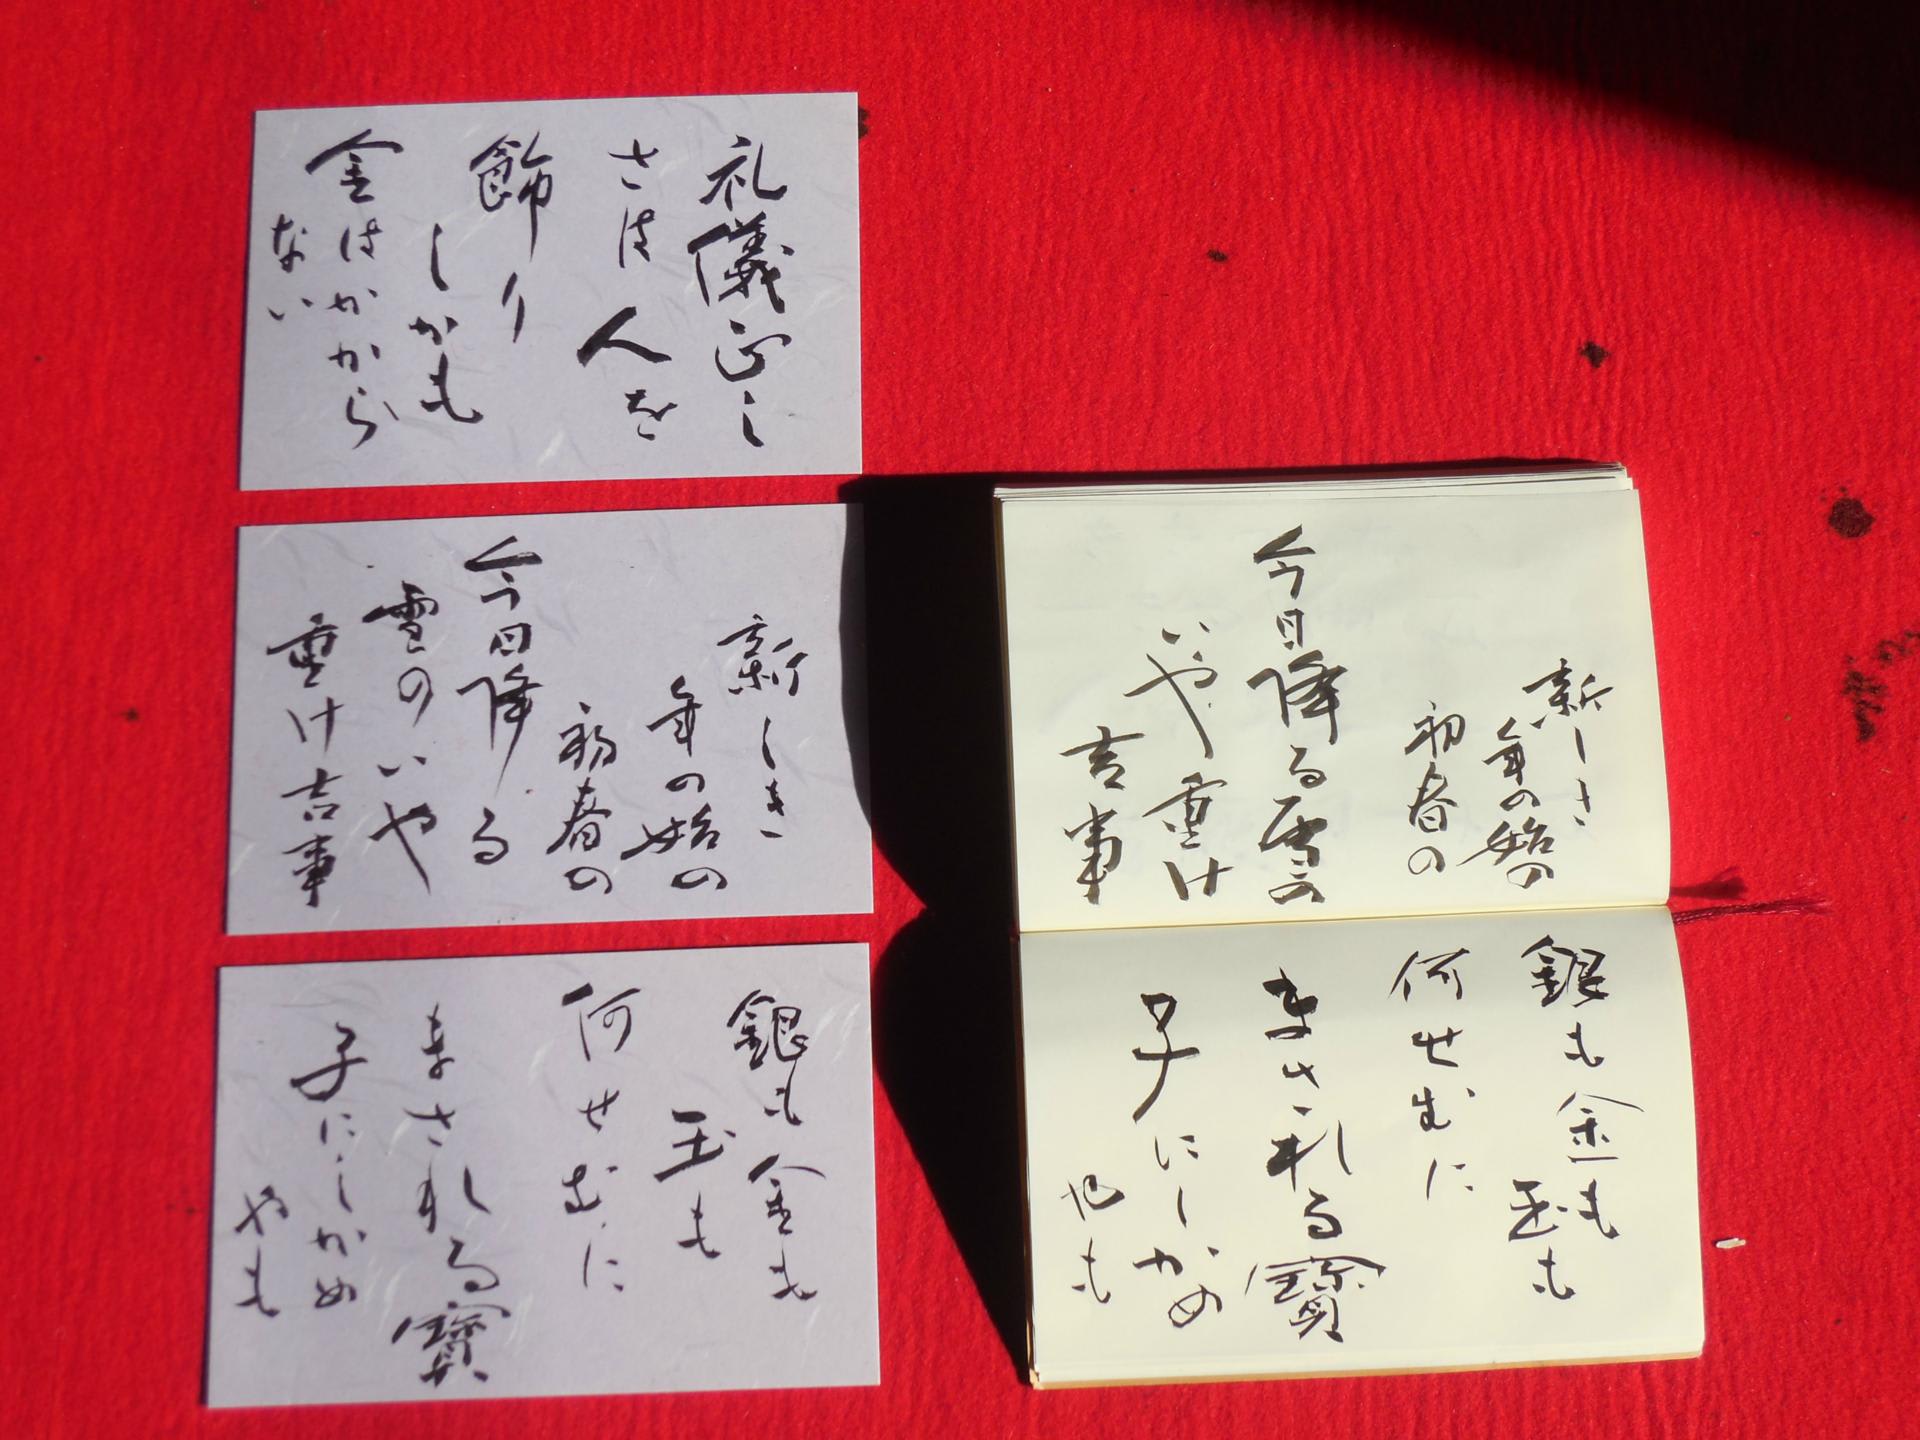 礼儀正し
さは人を
飾り
しかも
金はかから
ない
新しき
年の始の
初春の
今日降る
雪のいや
重け吉事
銀も金も
玉も
何せむに
まされる寳
子にしかめ
やも
新しき
年の始の
初春の
今日降る雪の
いや重け
吉事
銀も金も
玉も
何せむに
まされる寳
子にしかめ
やも